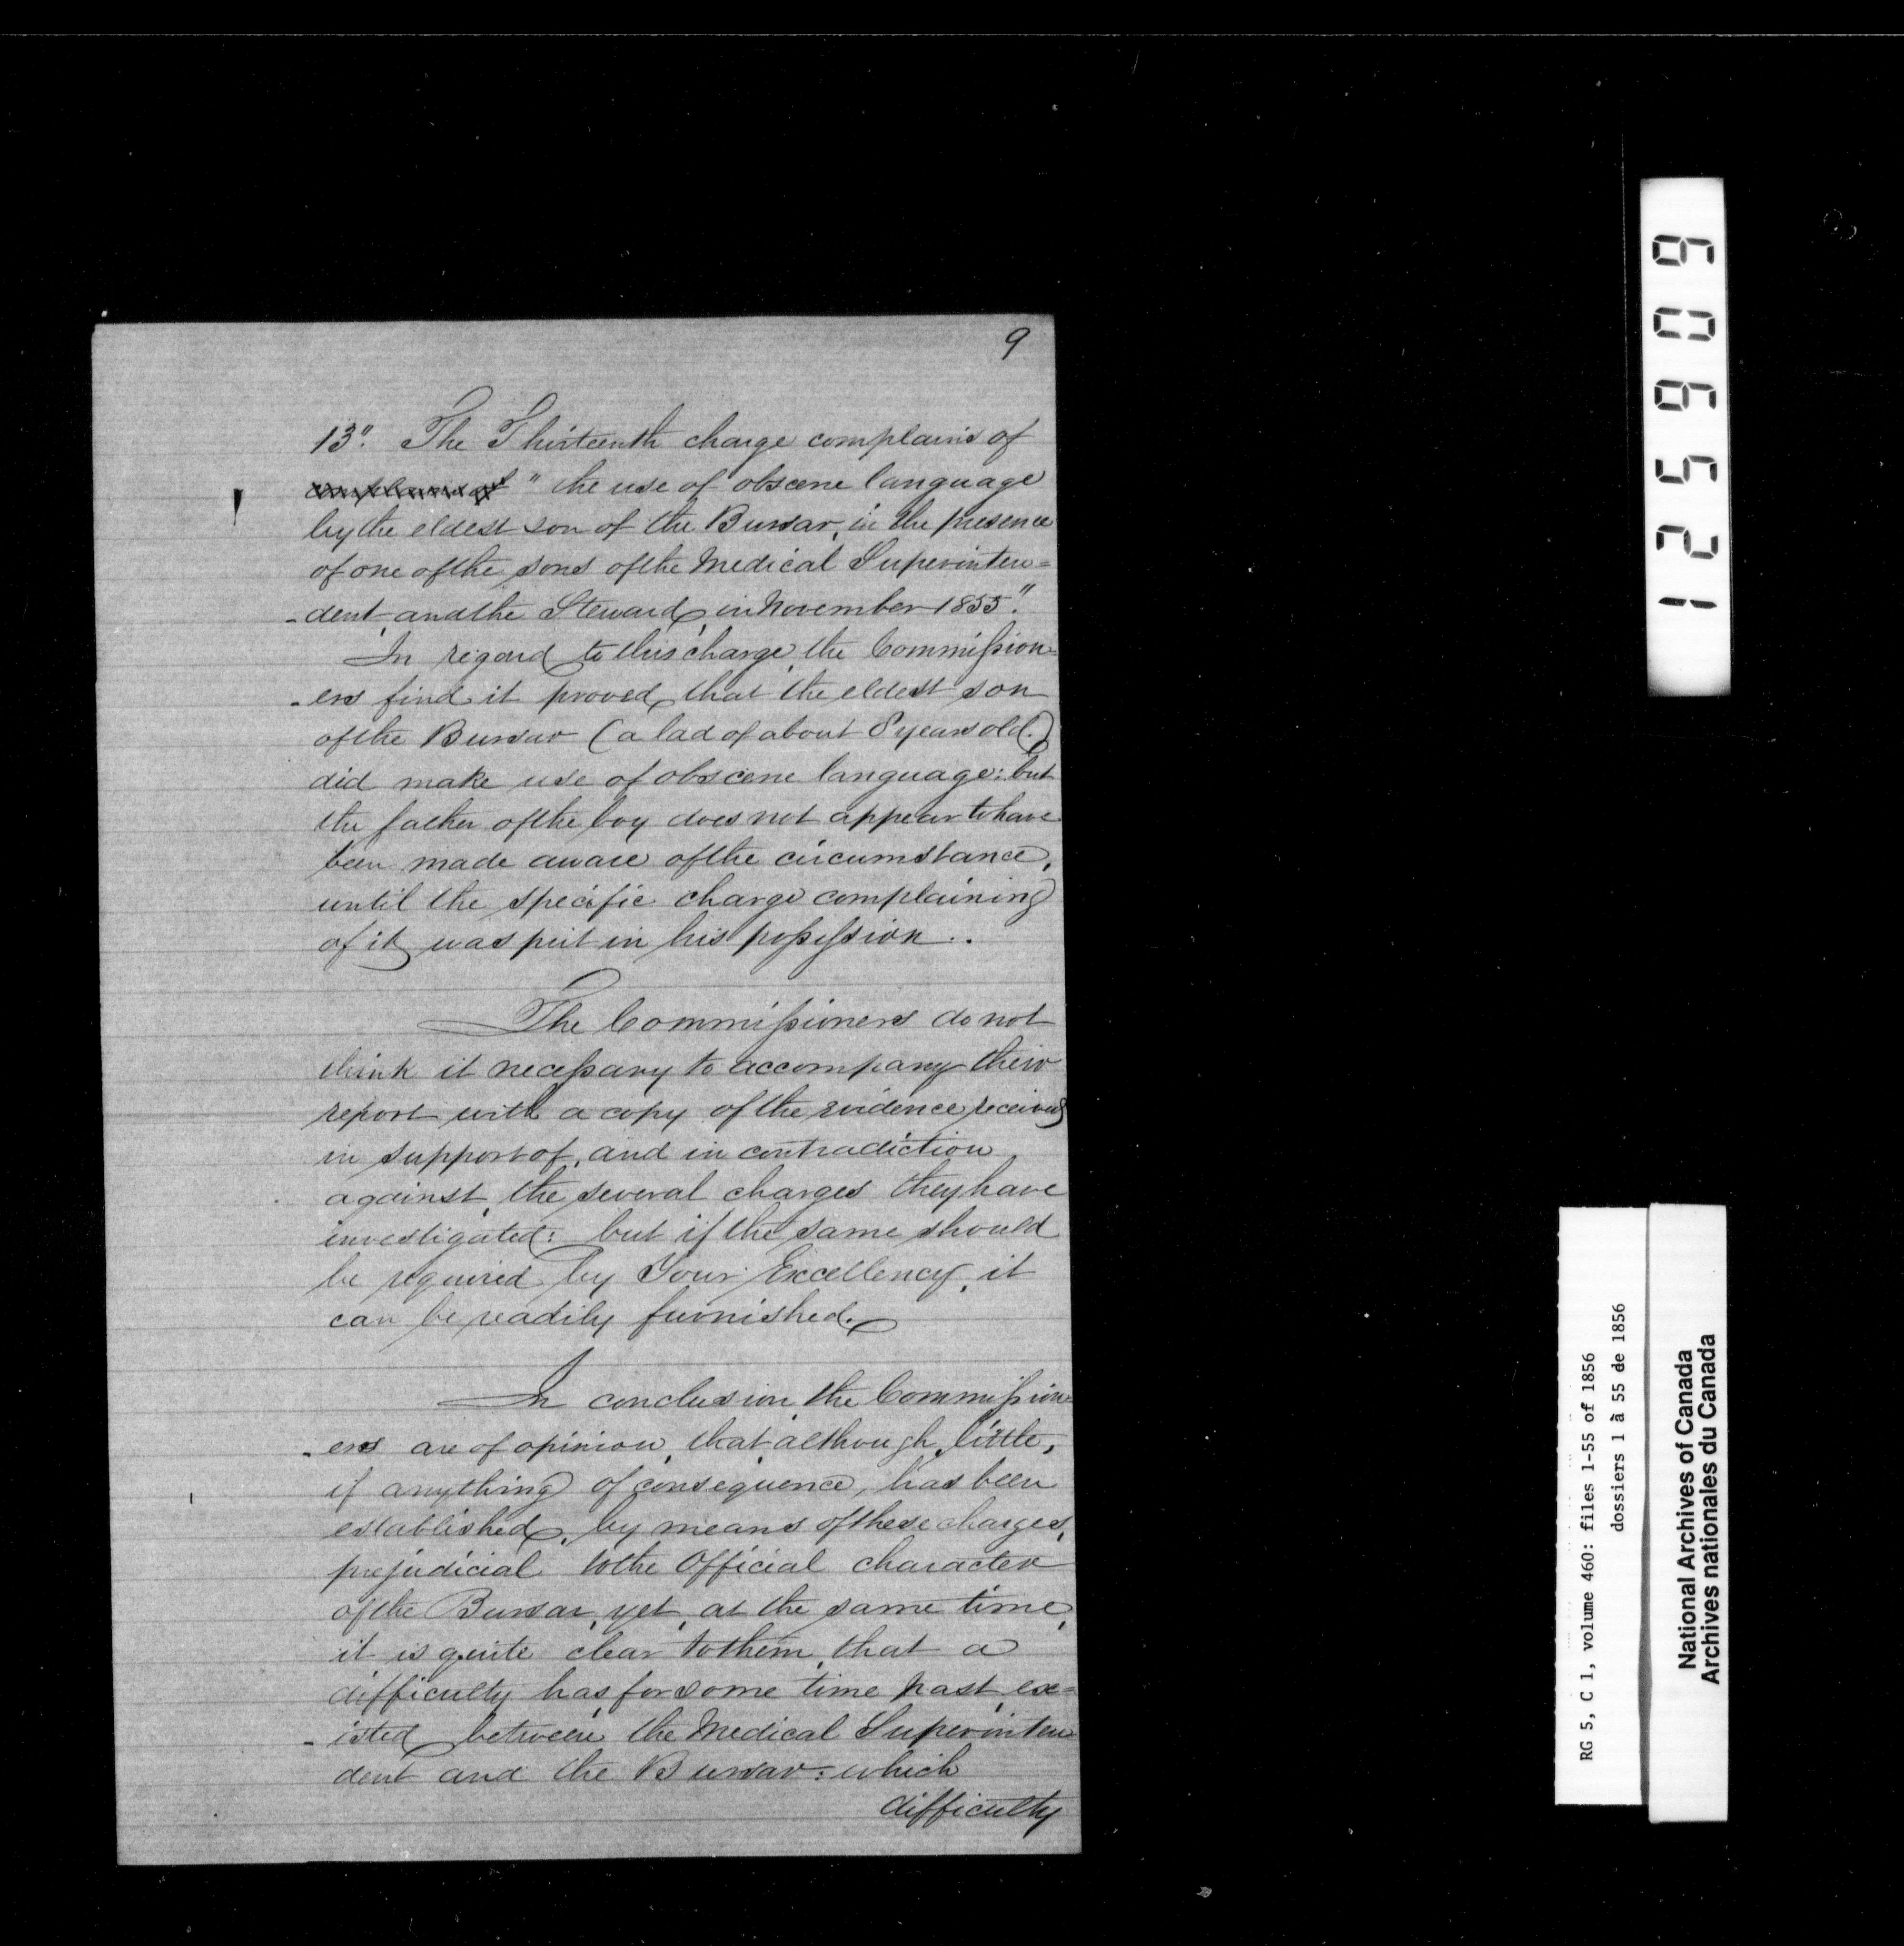 9
13". The Thirteenth charge complains of
"the use of obscene language
by the eldest son of the Bursar, in the presence
of one of the sons of the Medical Superinten=
-dent, and the Steward, in November 1855."
In regard to this charge, the Commission=
-ers find it proved, that the eldest son
of the Bursar (a lad of about 8 years old.)
did make use of obscene language: but
the father of the boy does not appear to have
been made aware of the circumstance,
until the specific charge complaining
of it, was put in his possession..
The Commissioners do not
think it necessary to accompany their
report with a copy of the evidence received
in support of, and in contradiction
against, the several charges they have
investigated: but if the same should
be required by Your Excellency, it
can be readily furnished.
In conclusion, the Commission=
-ers are of opinion, that although, little,
if anything of consequence, has been
established, by means of these charges,
prejudicial to the Official character
of the Bursar, yet, at the same time,
it is quite clear to them, that a
difficulty has, for some time past, ex=
-isted between the Medical Superinten=
dent and the Bursar: which
difficulty
125909
RG 5, C 1, volume 460: files 1-55 of 1856
dossiers 1 à 55 de 1856
National Archives of Canada
Archives nationales du Canada